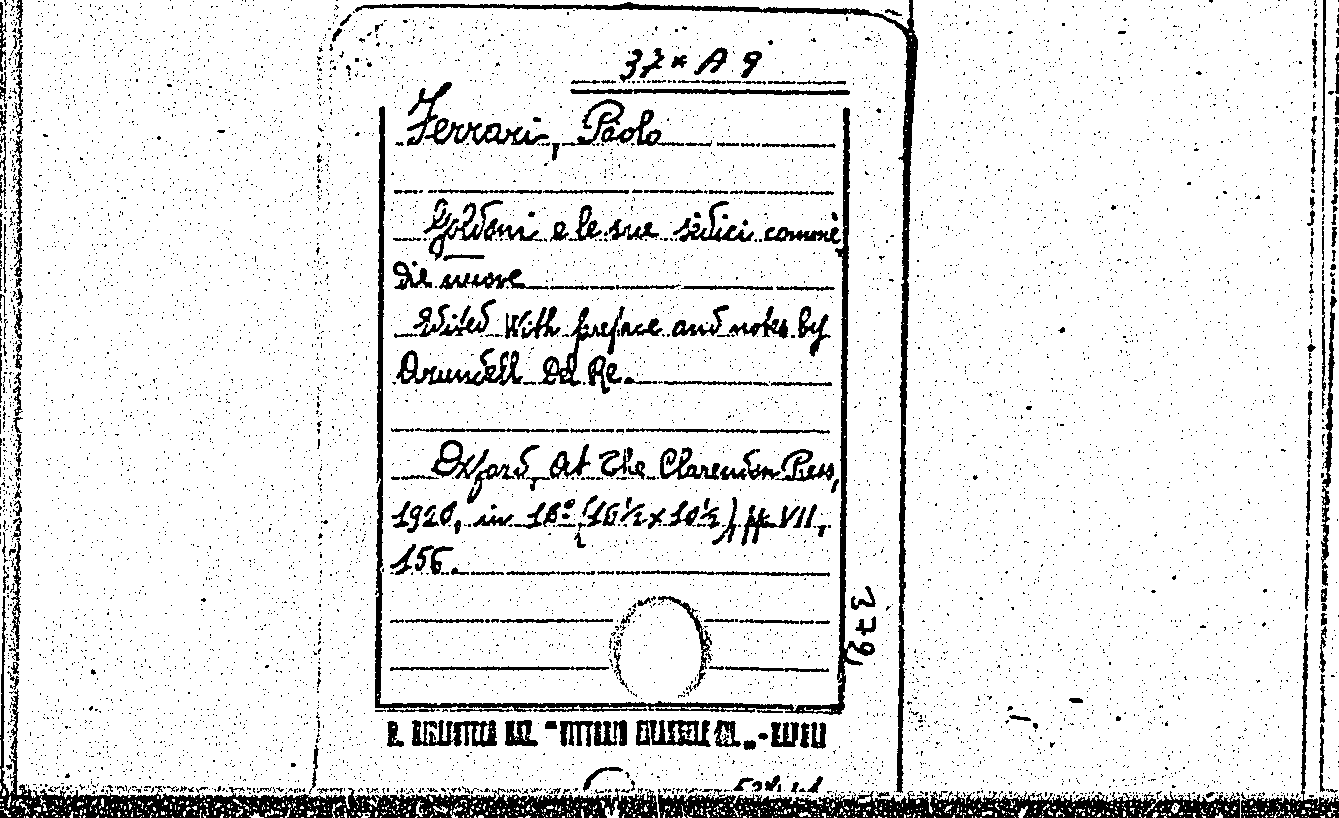 37* A 9
Ferrari, Paolo
Goldoni e le sue sedici comme
die nuove
Edited With preface and notes by
Arundell Del Re.
Oxford, At The Clarendon Press,
1920, in 16º (16½ x 10½), pp. VII,
156.
379
R. BIBLIOTECA NAZ. "VITTORIO EMANUELE III. „ - NAPOLI